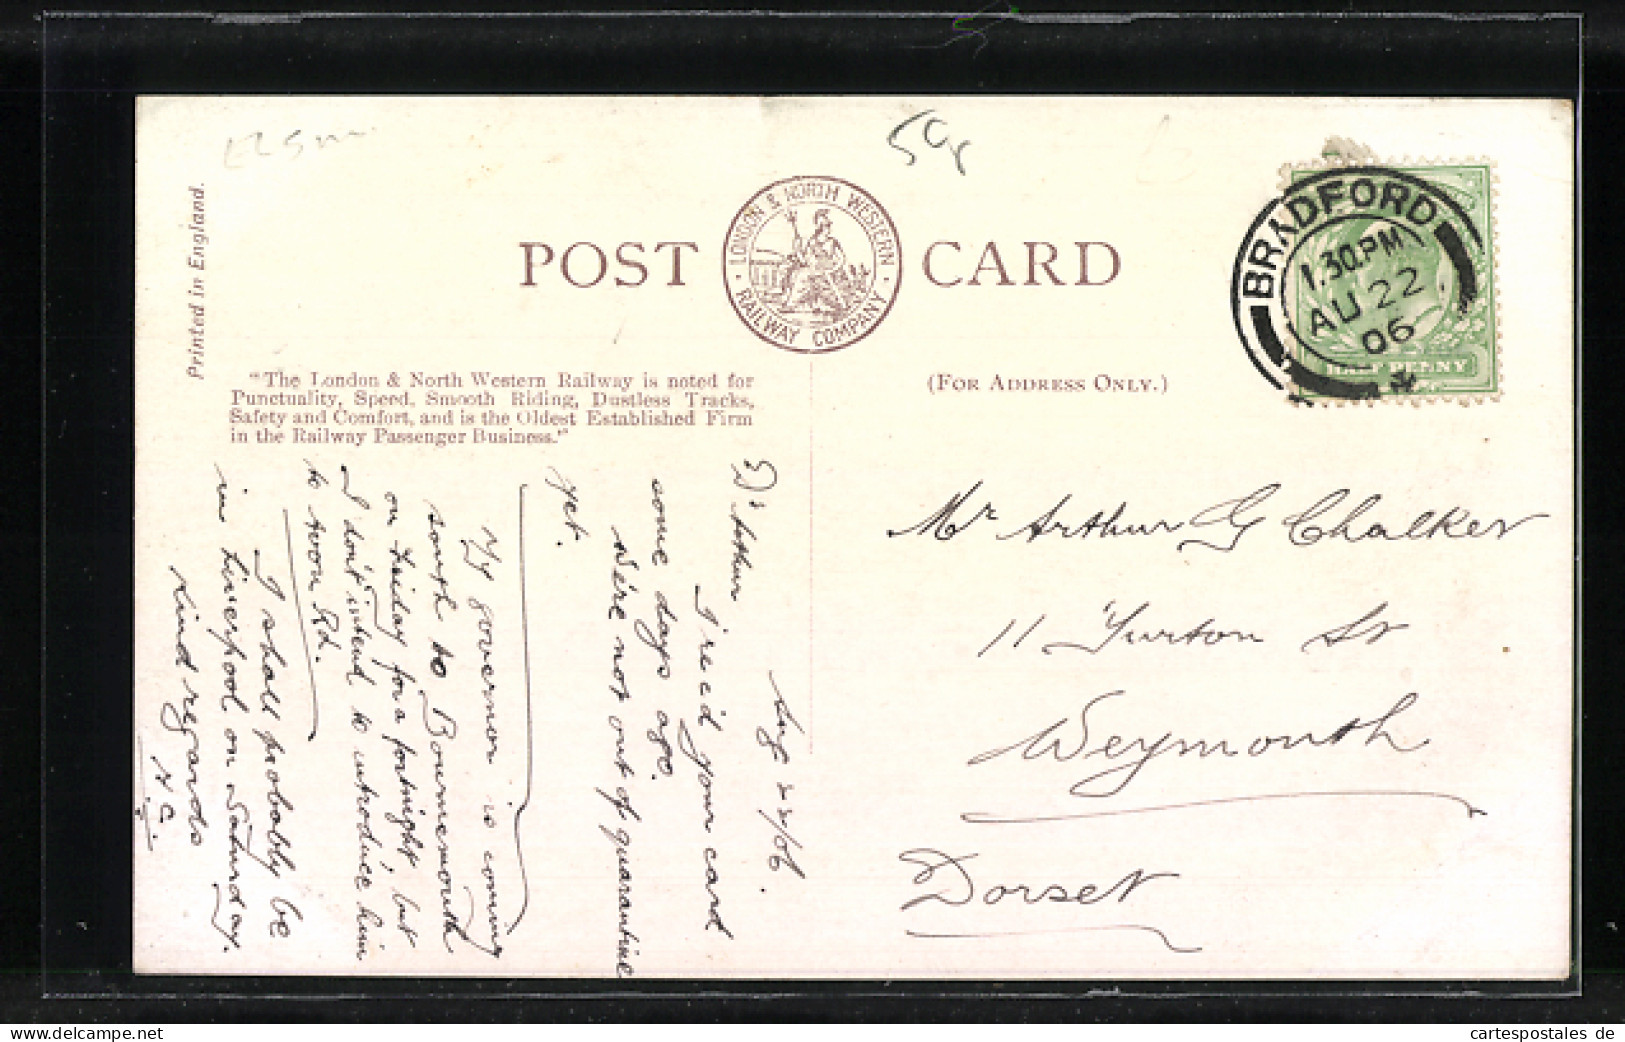 Printed in England.
POST CARD
LONDON & NORTH WESTERN
RAILWAY COMPANY
BRADFORD
1.30.PM
AU 22
06
HALF PENNY
"The London & North Western Railway is noted for
Punctuality, Speed, Smooth Riding, Dustless Tracks,
Safety and Comfort, and is the Oldest Established Firm
in the Railway Passenger Business."
(FOR ADDRESS ONLY.)
Aug 22/06.
Dr Arthur
I rec'd your card
some days ago.
We're not out of quarantine
yet.
Yr governor is coming
south to Bournemouth
on Friday for a fortnight, but
I don't intend to introduce him
to Avon Rd.
I shall probably be
in Liverpool on Saturday.
Kind regards
H.C.
Mr Arthur G Chalker
11 Turton St
Weymouth
Dorset
www.delcampe.net
cartespostales de